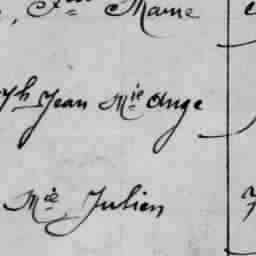 Fois Marie
ph Jean Mie Ange
Mie Julien